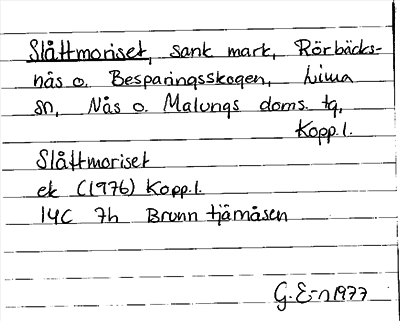 Slåttmoriset, sank mark, Rörbäcks-
näs o. Besparingsskogen, Lima
sn, Nås o. Malungs doms. tg,
Kopp.l.
Slåttmoriset
ek (1976) Kopp.l.
14C 7h Brunntjärnåsen
G. E-n 1977